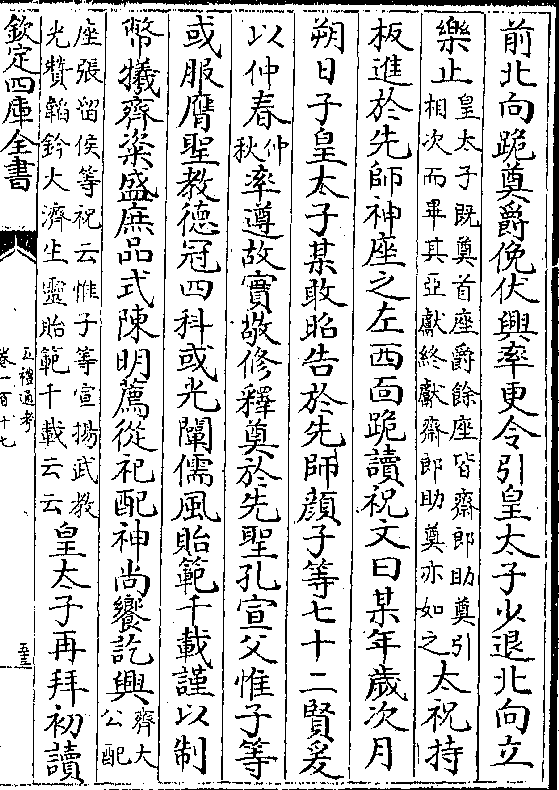 前北向跪奠爵俛伏興率更令引皇太子少退北向立
樂止皇太子既奠首座爵餘座皆齋郎助奠引相次而畢其亞獻終獻齋郎助奠亦如之太祝持
板進於先師神座之左西面跪讀祝文曰某年歲次月
朔日子皇太子某敢昭告於先師顔子等七十二賢爰
以仲春仲秋率遵故實敬修釋奠於先聖孔宣父惟子等
或服膺聖教德冠四科或光闡儒風貽範千載謹以制
幣犧齊粢盛庶品式陳明薦從祀配神尚饗訖興齊大公配
座張留侯等祝云惟子等宣揚武教光贊韜鈐大濟生靈貽範千載云云皇太子再拜初讀
欽定四庫全書
五禮通考
卷一百十七